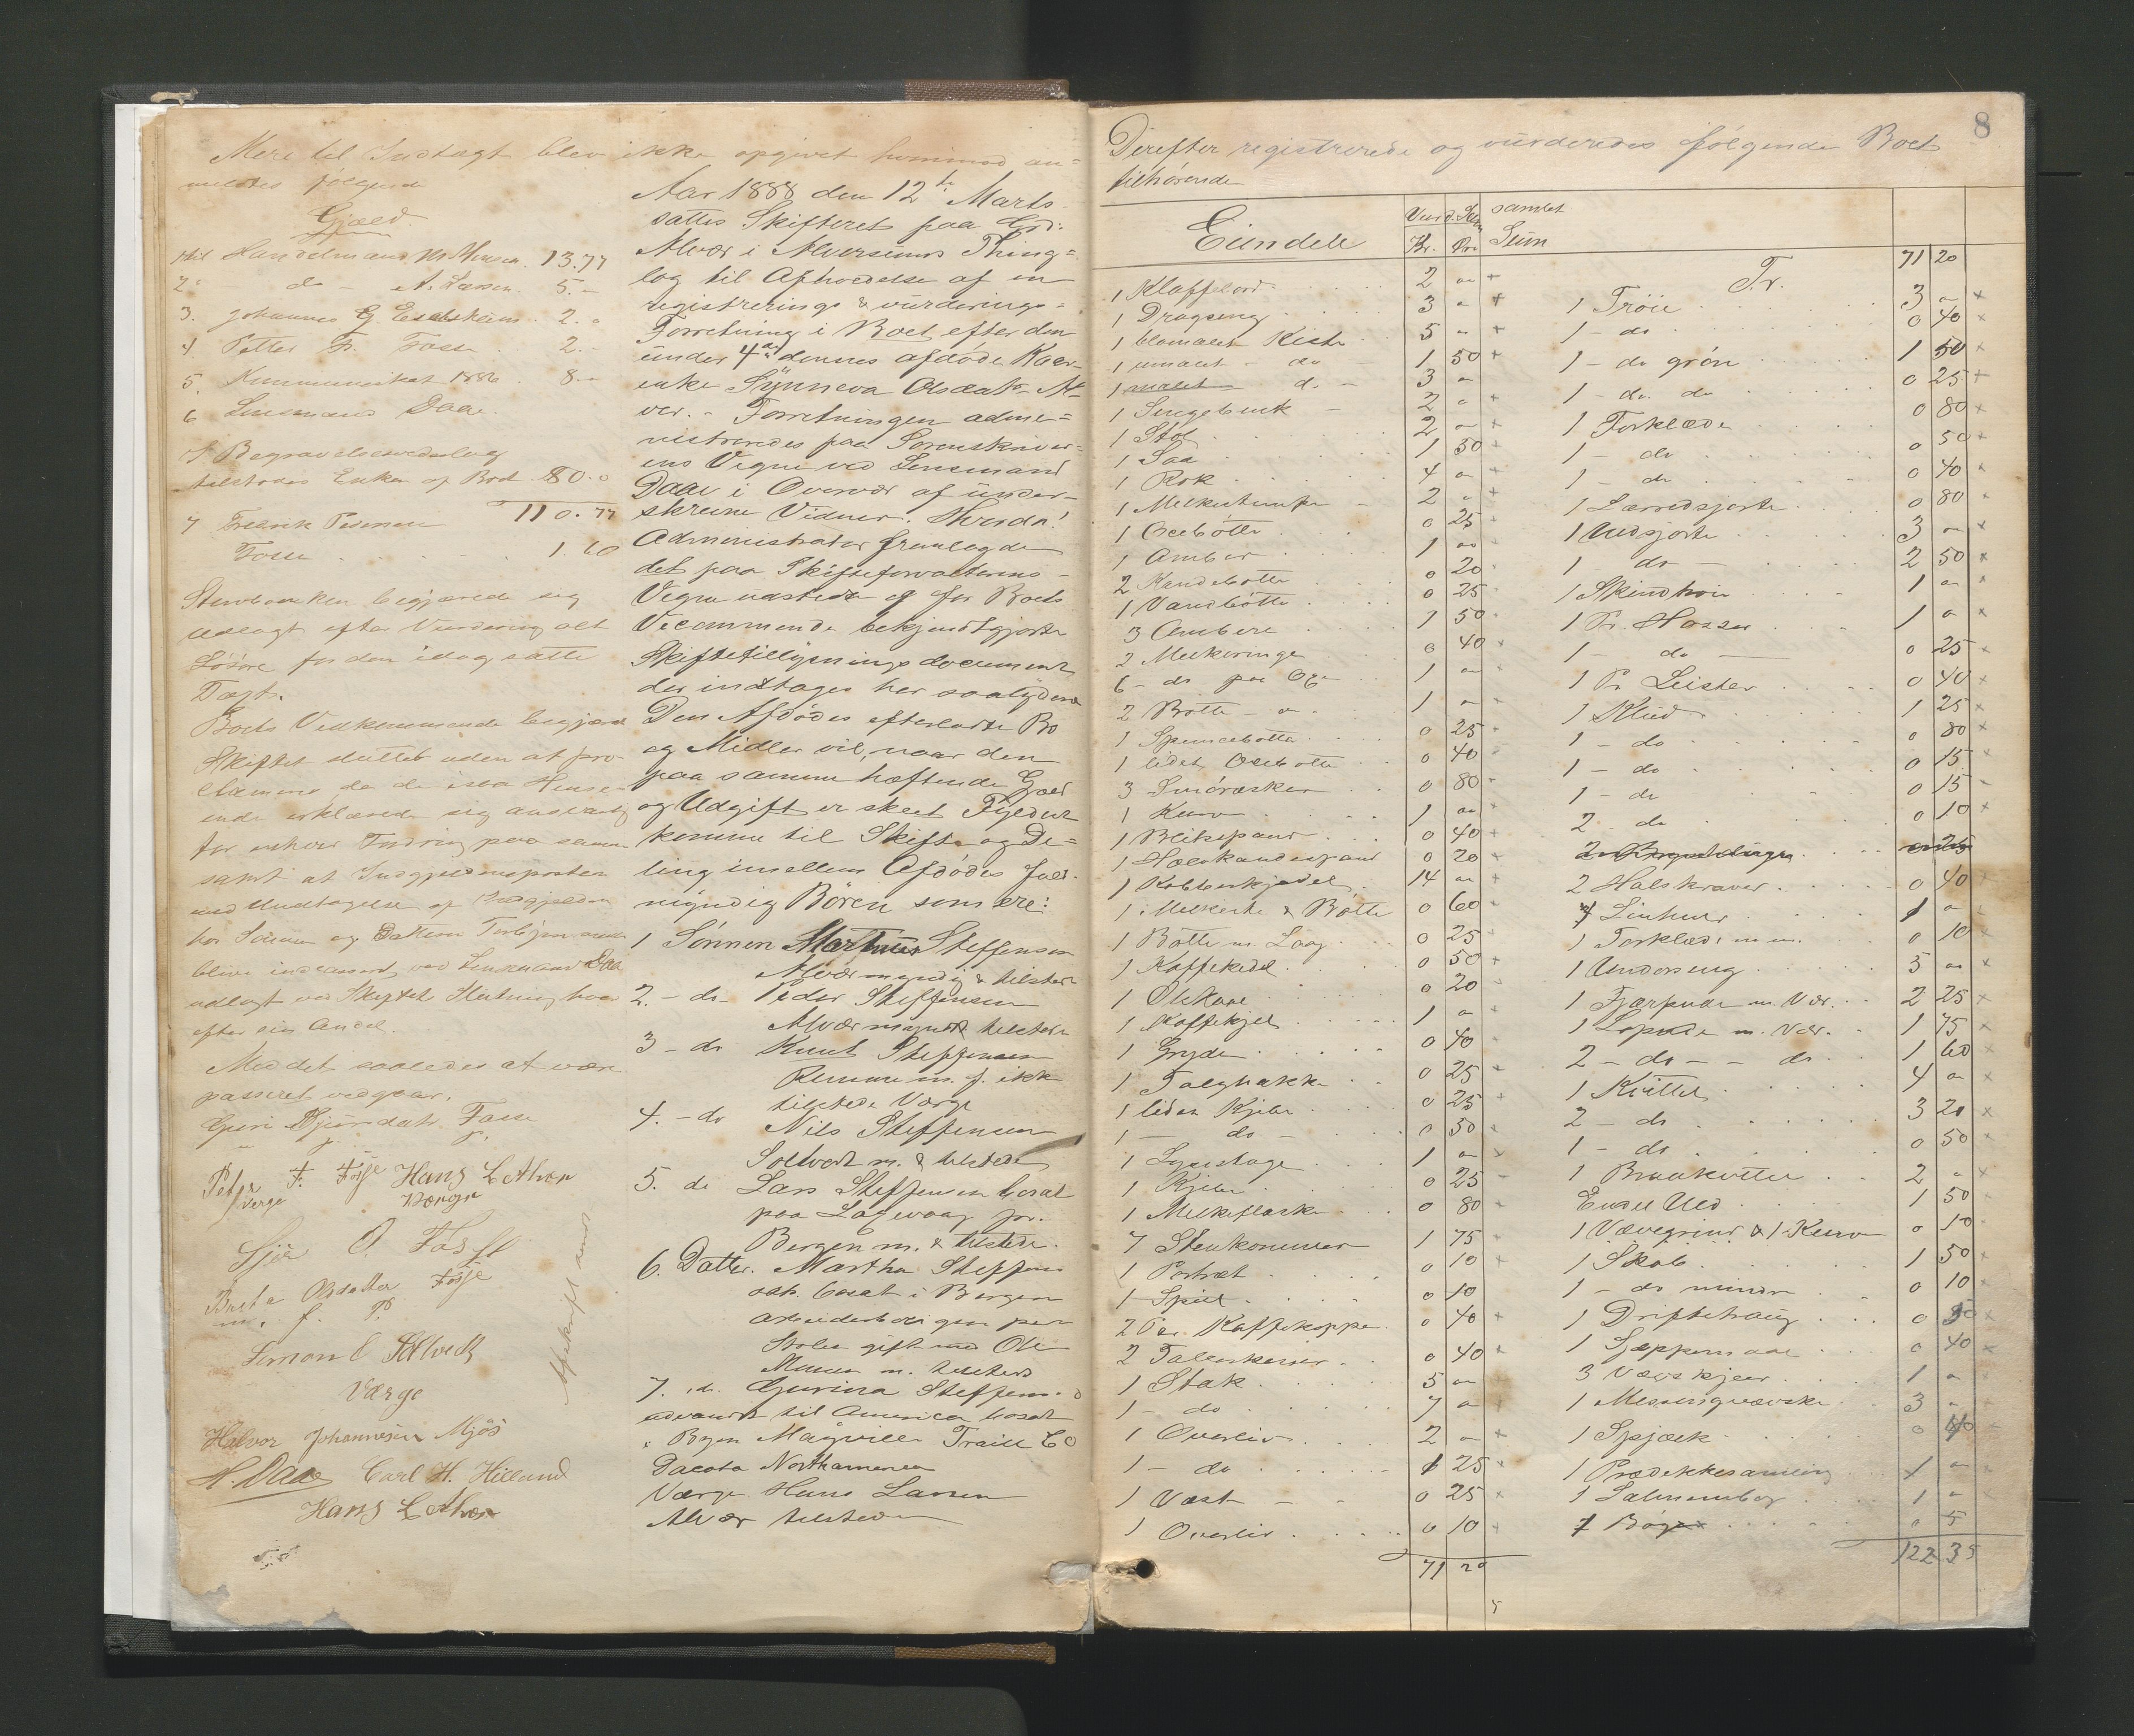 Mere til Indtægt blev ikke opgivet hvorimod an=
meldtes følgende
Gjæld
1 til Handelsmand M. Monsen 13.77
2. do - A. Larsen 5.-
3. Johannes G. 2.-
4. Petter Fr. Fosse 2.-
5. Kommuneskat 1886 8.-
6 Lensmand Daae.
Begravelsesvederlag
tilstodes Enken af Boet 80.0
110.77
7 Fredrik Pedersen
Fosse 1.60
begjærede sig
udlagt efter Vurdering alt
Løsøre for den idag satte
Taxt.
Boets Vedkommende begjærede
Skiftet sluttet uden at pro-
clameres da de i saa Hense-
ende erklærede sig ansvarlig
for enhver Fordring paa samme
samt at Indgjældsposten
med Undtagelse af Indgjælden
hos Sønnen og Datteren Torbjør
blive inddrevet ved Lensmand Daae
udlagt ved Skiftets Slutning hver
efter sin Andel.
Med det saaledes at være
passeret vedgaar.
Guri Fosse
Petter F. Fosse Hans L Alver
Verge Værge
O. Fosse
Berte Olsdatter Fosse
m. f. P.
Simon O Solvedt
Værge
Halvor Johannesen Mjøs
H. Daae Carl H. Hilland
Hans L Alver
Aar 1888 den 12te Marts
sattes Skifteret paa Grd:
Alvær i Alversunds Thing=
lag til Afholdelse af en
registrerings & vurderings=
Forretning i Boet efter den
under 4de dennes afdøde Kaar-
enke Synneva Olsdatr Al-
ver. - Forretningen admi=
nistreredes paa Sorenskriver-
ens Vegne ved Lensmand
Daae i Overvær af under-
skrevne Vidner. Hvorda!
Administrator fremlagde
det paa Skifteforvalterens -
Vegne udstedte og for Boets
Vecommende bekjendtgjorte
Skiftetillysningsdocument
der indtages her saalydende
Den Afdødes efterladte Bo
og Midler vil, naar den
paa samme hæftende Gjæld
og Udgift er skeet Fyldest
komme til Skifte og De=
ling imellem Afdødes fuld-
myndig Børen som ere:
1 Sønnen Martinus Steffensen
Alvær myndig & tilstede
2. - do - Peder Steffensen
Alvær myndig tilstede
3 - do Knut Steffensen
Remme m. f. ikke
tilstede Værge
4. - do Nils Steffensen
Soltvedt m. & tilstede
5. do Lars Steffensen bosat
paa Laxevaag pr.
Bergen m. & tilstede.
6. Datter. Martha Steffens
datr. bosat i Bergen
Arbeiderboligen paa
Stølen gift med Ole
Monsen m. tilstede
7. do. Gurina Steffensd
udvandret til America bosat
i Byen Mayville Traill Co
Dacota Northamerica
Værge Hans Larsen
Alvær tilstede
8
Derefter registreredes og vurderedes følgende Boet
tilhørende
Eiendele
Vurd. Sum
Kr. Øre
samlet
Sum
1 Klaffebord 2 "
1 Dragseng 3 "
1 blomalet Kiste 5 "
1 umalet - do 1 50
1 malet do - 3 "
1 Sengebenk - 2 "
1 Stol 2 "
1 Saa 1 50
1 Rok 4 "
1 Melkestampe 2 "
1 Osebøtte 0 25
1 Amber 1 "
2 Kandebøtte 0 20
1 Vandbøtte 0 25
3 Ambere 1 50
2 Melkeringe 0 40
6 - do 1 "
2 Bøtte 1 "
1 Spandebøtte 0 25
1 lidet Osebøtte 0 40
3 Smørasker 0 80
1 Kurv 1 "
1 Blikspand 0 40
1 0 20
1 Kobberkjedel 14 "
1 & Bøtte 0 60
1 Bøtte m. Laag 0 25
1 Kaffekedel 0 50
1 Ølkane 0 20
1 Kaffekjel 1 "
1 Gryde 0 40
1 Talghakke 0 25
1 liden Kjele 0 25
1 - do - 0 50
1 Lysestage 1 "
1 Kjele 0 25
1 Melkeflaske 0 80
7 Stenkommer 1 75
1 Portræt 0 10
1 Speil 0 10
2 Par Kaffekoppe 0 40
2 Tallerkener 0 40
1 Stak 5 "
1 - do 7 "
1 Overliv 2 "
1 - do 1 25
1 Væst - - 0 25
1 Overliv 0 10
71 20
Tr. 71 20
1 Trøie 3 "
1 - do 0 40
1 - do grøn 1 50
1 - do do 0 25
1 Forklæde 0 80
1 - do 0 50
1 - do 0 40
1 Lærredsjorte 0 80
1 Uldsjorte 3 "
1 - do - 2 50
1 Skindtrøie 1 "
1 Pr. Hosser 1 "
1 - do 0 25
1 Pr Leister 0 40
1 Klud 1 25
1 - do 0 80
1 - do 0 15
1 - do 0 15
2 do 0 10
2 Halskraver 0 40
7 Linhuer 1 "
1 Forklæde m m. 0 10
1 Underseng 5 "
1 Fjærpude m. Vær. 2 25
1 m. Vær. 1 75
2 - do - - do 1 60
1 Kvittel 4 "
2 - do 3 20
1 - do 0 50
1 2 "
Endel Uld 1 50
1 Vævegrind & 1 Kurv 0 10
1 Skab 1 50
1 - do mindre 0 10
1 0 50
1 Sjeppemaal 0 40
3 Vævskjeer 1 "
1 3 "
1 Spjælk 0 40
1 Prædikkesamling 1 "
1 Salmembog 1 "
7 Bøger 0 5
122 35